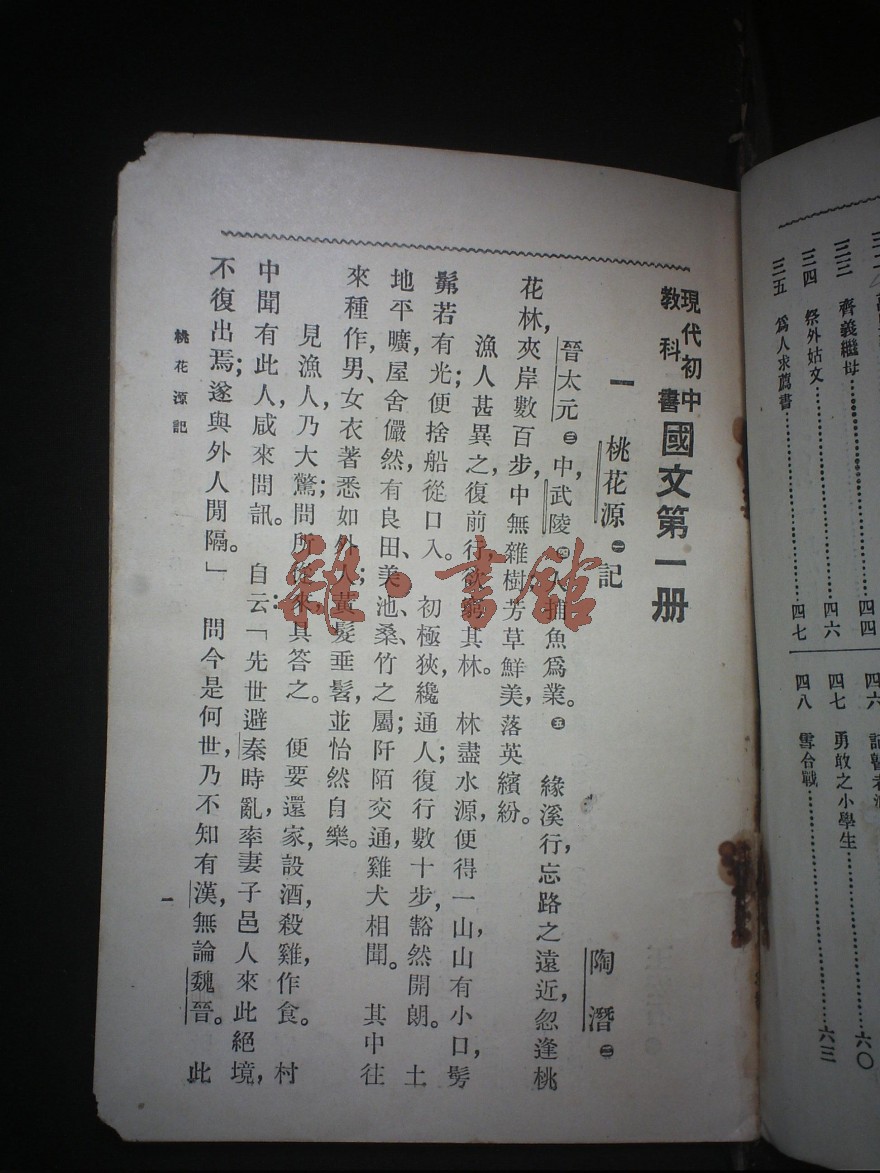 三三 齊義繼母 四四
三四 祭外姑文 四六
三五 爲人求薦書 四七
四七 勇敢之小學生 六〇
四八 雪合戰 六三
現代初中
教科書
國文第一册
一 桃花源㊀記 陶潛㊁
晉太元㊂中,武陵㊃人捕魚爲業。㊄ 緣溪行,忘路之遠近,忽逢桃
花林,夾岸數百步,中無雜樹芳草鮮美,落英繽紛。
漁人甚異之,復前行,欲窮其林。 林盡水源,便得一山,山有小口,髣
髴若有光;便捨船從口入。 初極狹,纔通人;復行數十步,豁然開朗。 土
地平曠,屋舍儼然,有良田、美池、桑、竹之屬;阡陌交通,雞犬相聞。 其中往
來種作,男、女衣著悉如外人;黃髮垂髫,並怡然自樂。
見漁人,乃大驚;問所從來,具答之。 便要還家,設酒,殺雞,作食。 村
中聞有此人,咸來問訊。 自云:「先世避秦時亂,率妻子邑人來此絕境,
不復出焉;遂與外人閒隔。」 問今是何世,乃不知有漢,無論魏晉。 此
桃花源記
一
雜·書館